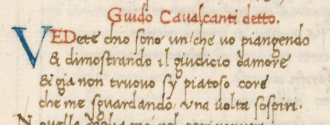 Guido Caualcanti detto.
VEDete ch'io sono un che uo piangendo
& dimostrando il giudicio d'amore
& gia non truouo sy piatoso core
che me sguardando una uolta sospiri.